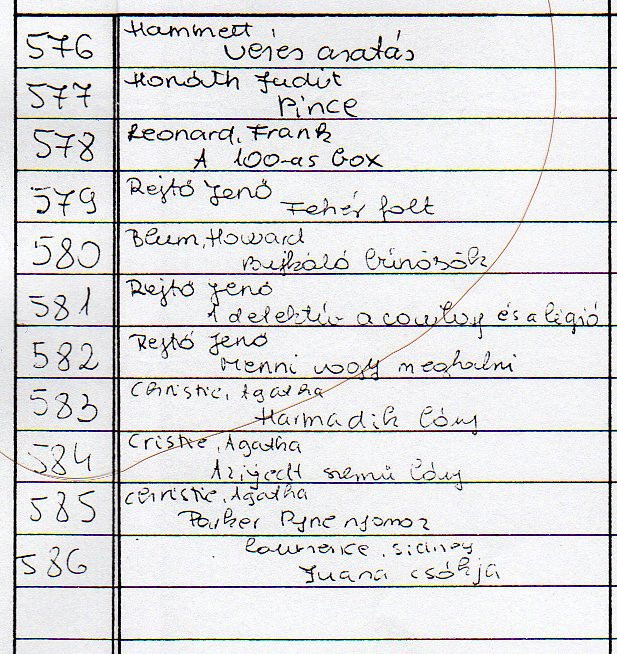 576 Hammett
Véres aratás
577 Horváth Judit
Pince
578 Leonard, Frank
A 100-as box
579 Rejtő Jenő
Fehér folt
580 Blum, Howard
Bujkáló bűnösök
581 Rejtő Jenő
A detektív a cowboy és a légió
582 Rejtő Jenő
Menni vagy meghalni
583 Christie, Agatha
Harmadik lány
584 Cristie, Agatha
Az ijedt szemű lány
585 Christie, Agatha
Parker Pyne nyomoz
586 Lawrence, Sidney
Juana csókja